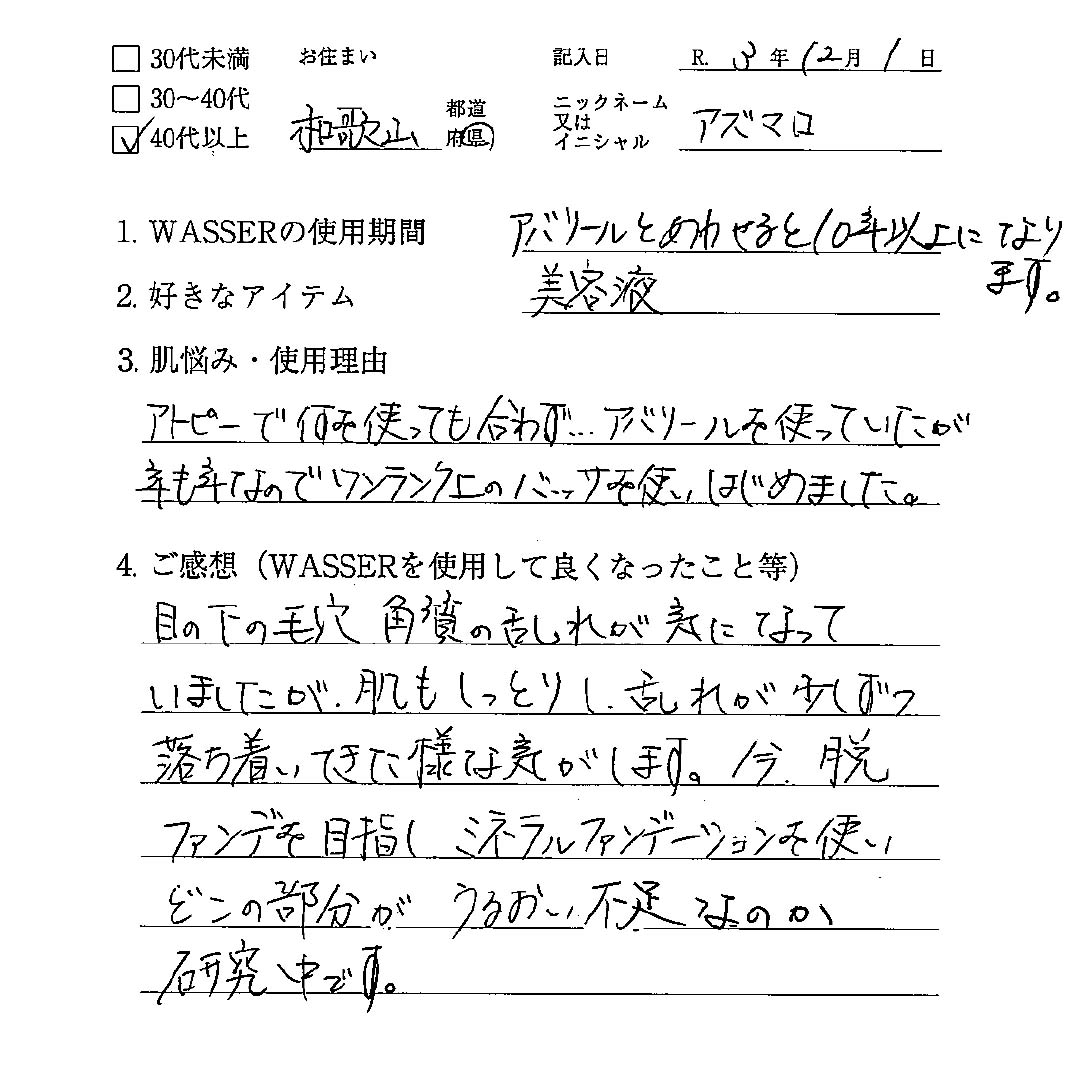 30代未満 お住まい 記入日 R. 3年12月1日
30～40代 和歌山 都道府県 ニックネーム又はイニシャル アズマロ
40代以上
1. WASSERの使用期間 アバリールとあわせると10年以上になります。
2. 好きなアイテム 美容液
3. 肌悩み・使用理由
アトピーで何を使っても合わず…アバリールを使っていたが
年も年なのでワンランク上のバッサを使いはじめました。
4. ご感想（WASSERを使用して良くなったこと等）
目の下の毛穴 角質の乱れが気になって
いましたが、肌もしっとりし、乱れが少しずつ
落ち着いてきた様な気がします。今、脱
ファンデを目指し ミネラルファンデーションを使い
どこの部分が うるおい不足なのか
研究中です。